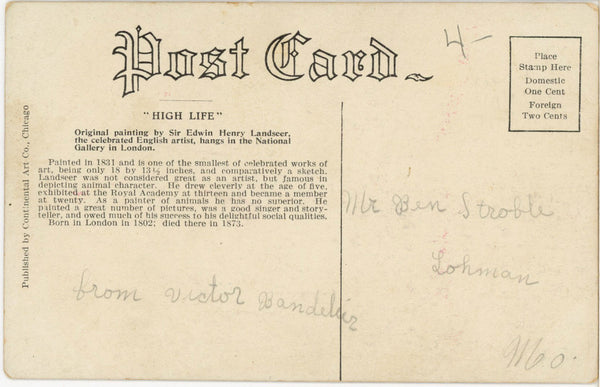 Post Card
4-
Place
Stamp Here
Domestic
One Cent
Foreign
Two Cents
"HIGH LIFE"
Original painting by Sir Edwin Henry Landseer,
the celebrated English artist, hangs in the National
Gallery in London.
Painted in 1831 and is one of the smallest of celebrated works of
art, being only 18 by 13½ inches, and comparatively a sketch.
Landseer was not considered great as an artist, but famous in
depicting animal character. He drew cleverly at the age of five,
exhibited at the Royal Academy at thirteen and became a member
at twenty. As a painter of animals he has no superior. He
painted a great number of pictures, was a good singer and story-
teller, and owed much of his success to his delightful social qualities.
Born in London in 1802; died there in 1873.
Published by Continental Art Co., Chicago
Mr Ben Stroble
Lohman
Mo.
from Victor